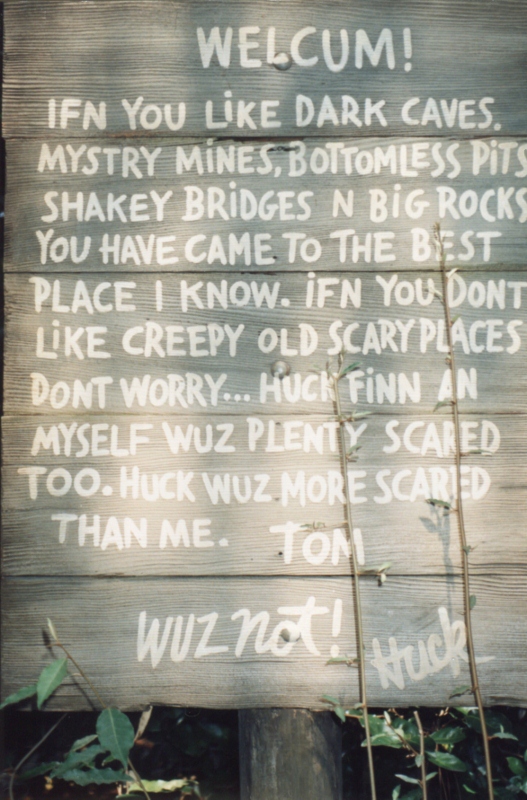 WELCUM!
IFN YOU LIKE DARK CAVES.
MYSTRY MINES, BOTTOMLESS PITS
SHAKEY BRIDGES N BIG ROCKS
YOU HAVE CAME TO THE BEST
PLACE I KNOW. IFN YOU DONT
LIKE CREEPY OLD SCARY PLACES
DONT WORRY... HUCK FINN AN
MYSELF WUZ PLENTY SCARED
TOO. HUCK WUZ MORE SCARED
THAN ME. TOM
WUZ not!
Huck